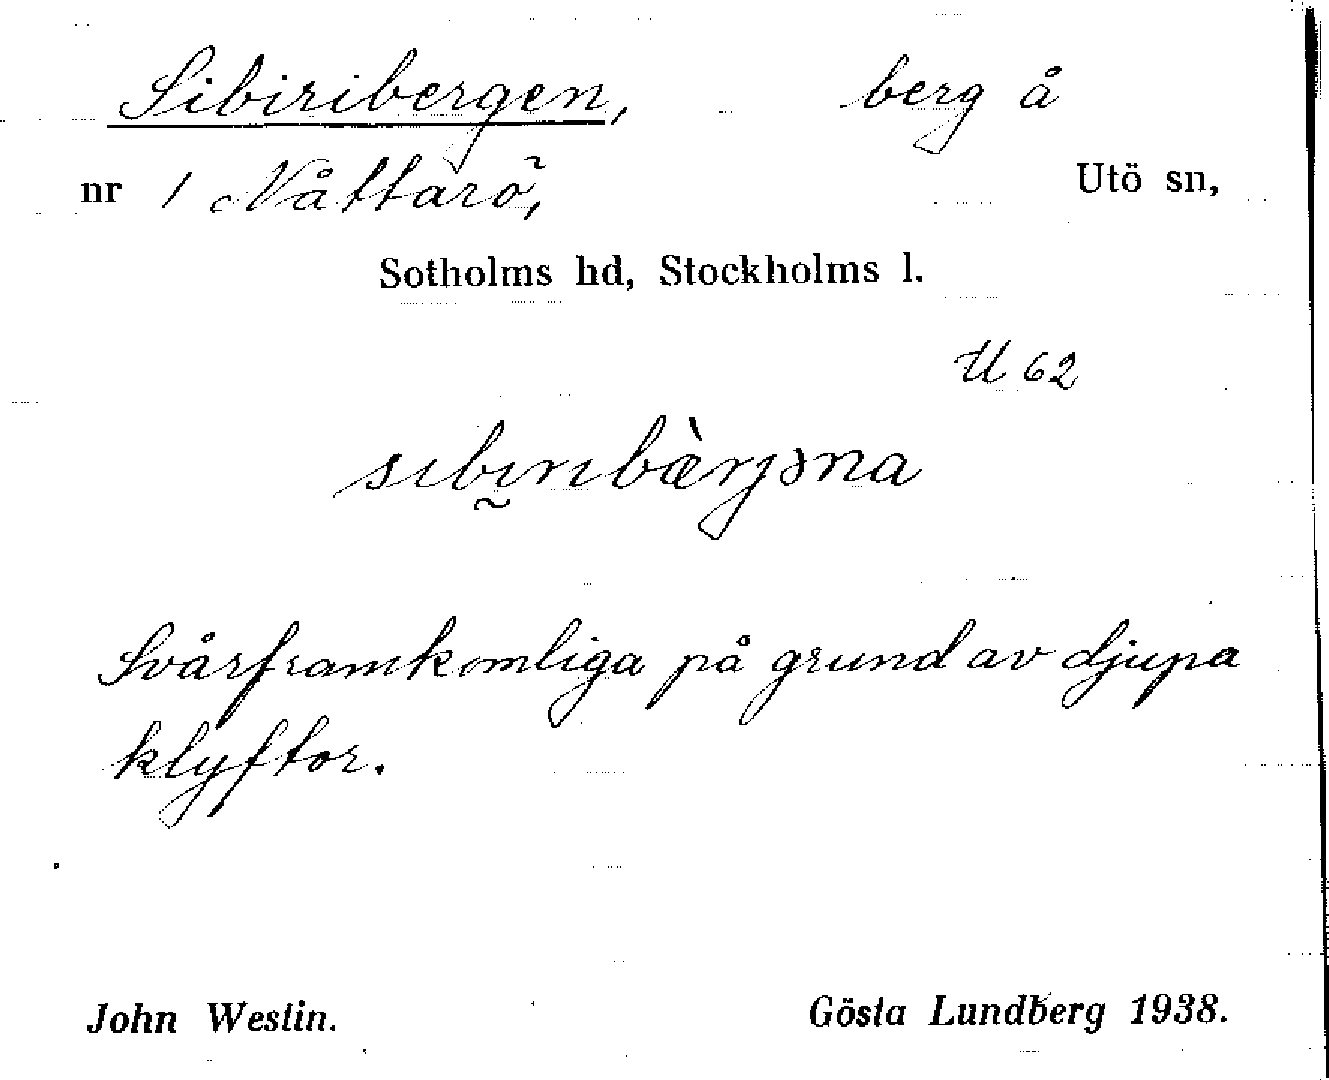 Sibiribergen, berg å
nr 1 Nåttarö, Utö sn,
Sotholms hd, Stockholms l.
U 62
sıbırıbæ̀rjəna
Svårframkomliga på grund av djupa
klyftor.
John Westin. Gösta Lundberg 1938.